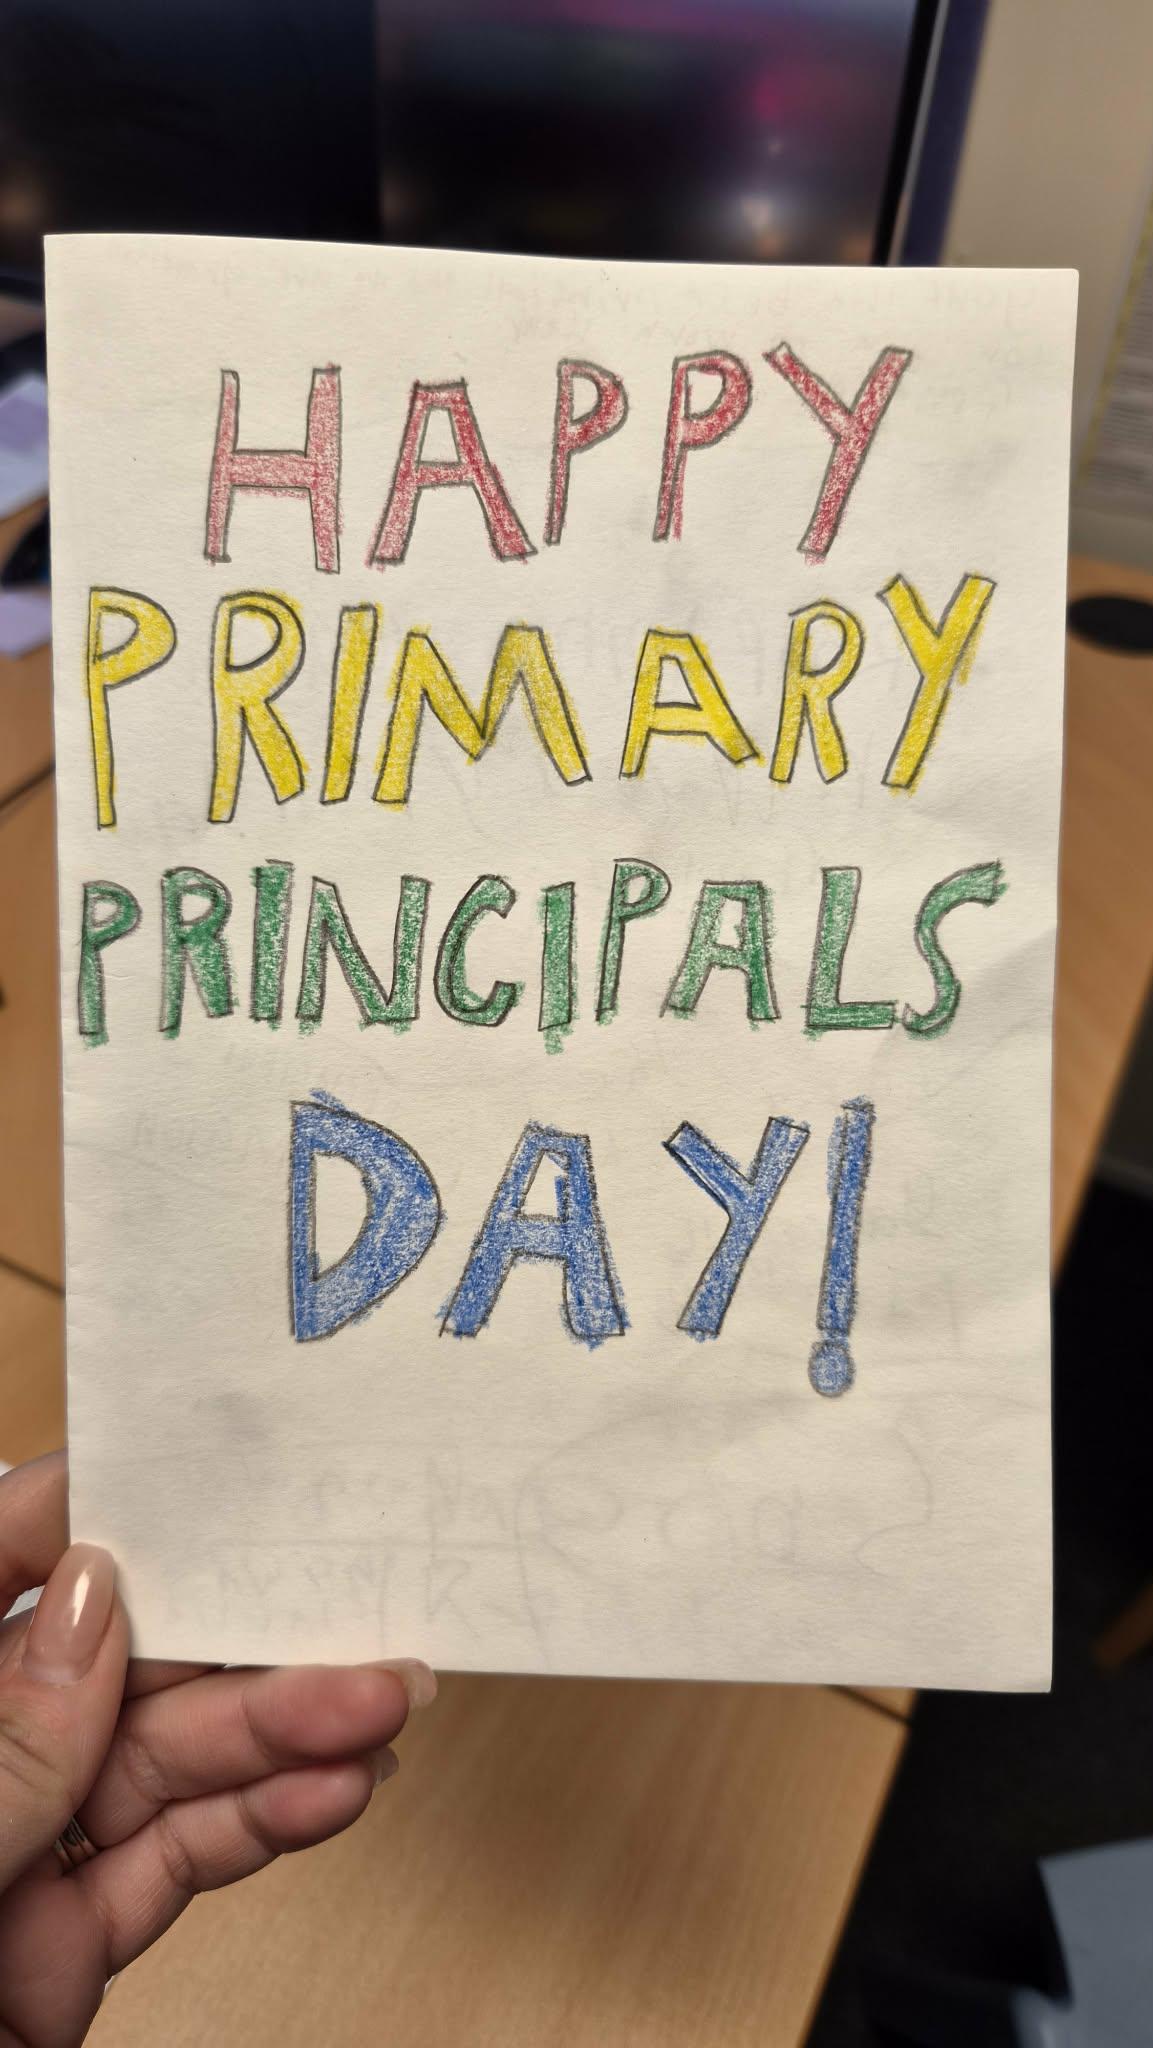 HAPPY
PRIMARY
PRINCIPALS
DAY!